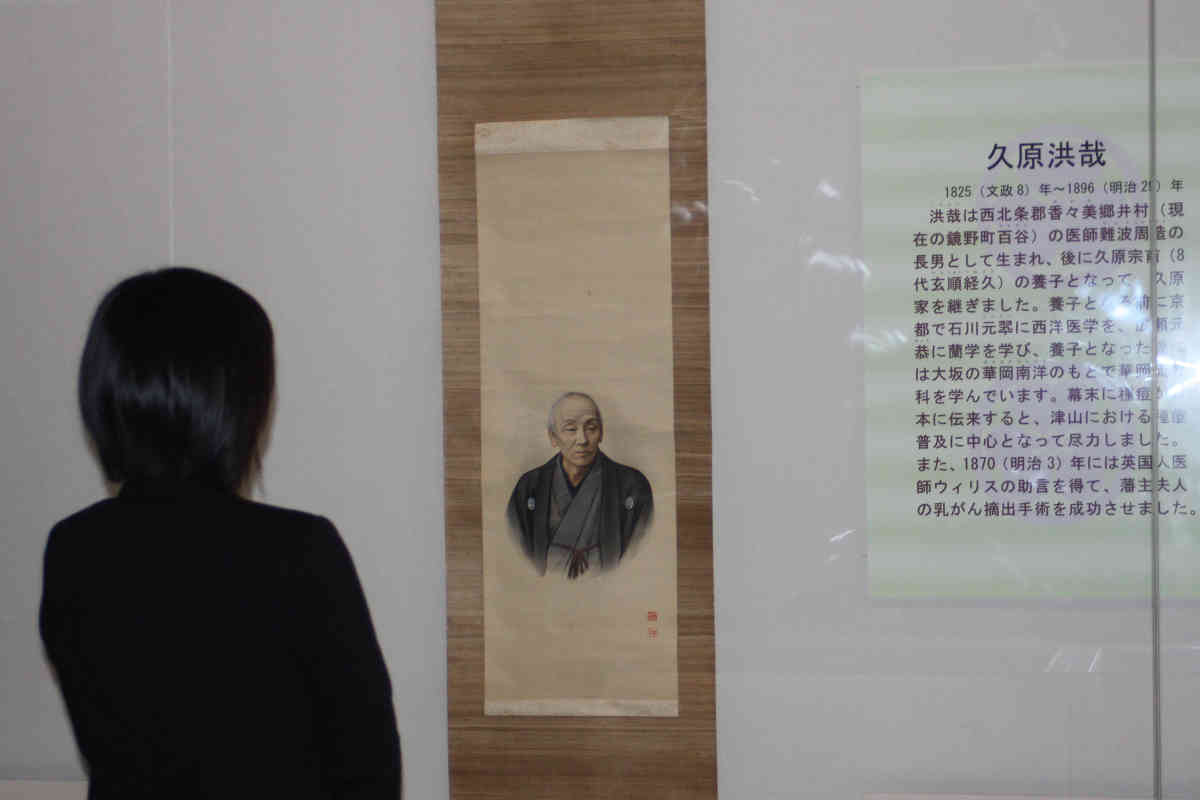 久原洪哉
1825（文政8）年～1896（明治2）年
洪哉は西北条郡香々美郷井村（現
在の鏡野町百谷）の医師難波周造の
長男として生まれ、後に久原宗甫（8
代玄順経久）の養子となって、久原
家を継ぎました。養子となる前に京
都で石川元翠に西洋医学を、広瀬元
恭に蘭学を学び、養子となった
は大坂の華岡南洋のもとで華岡
科を学んでいます。幕末に種痘が
本に伝来すると、津山における種痘
普及に中心となって尽力しました。
また、1870（明治3）年には英国人医
師ウィリスの助言を得て、藩主夫人
の乳がん摘出手術を成功させました。